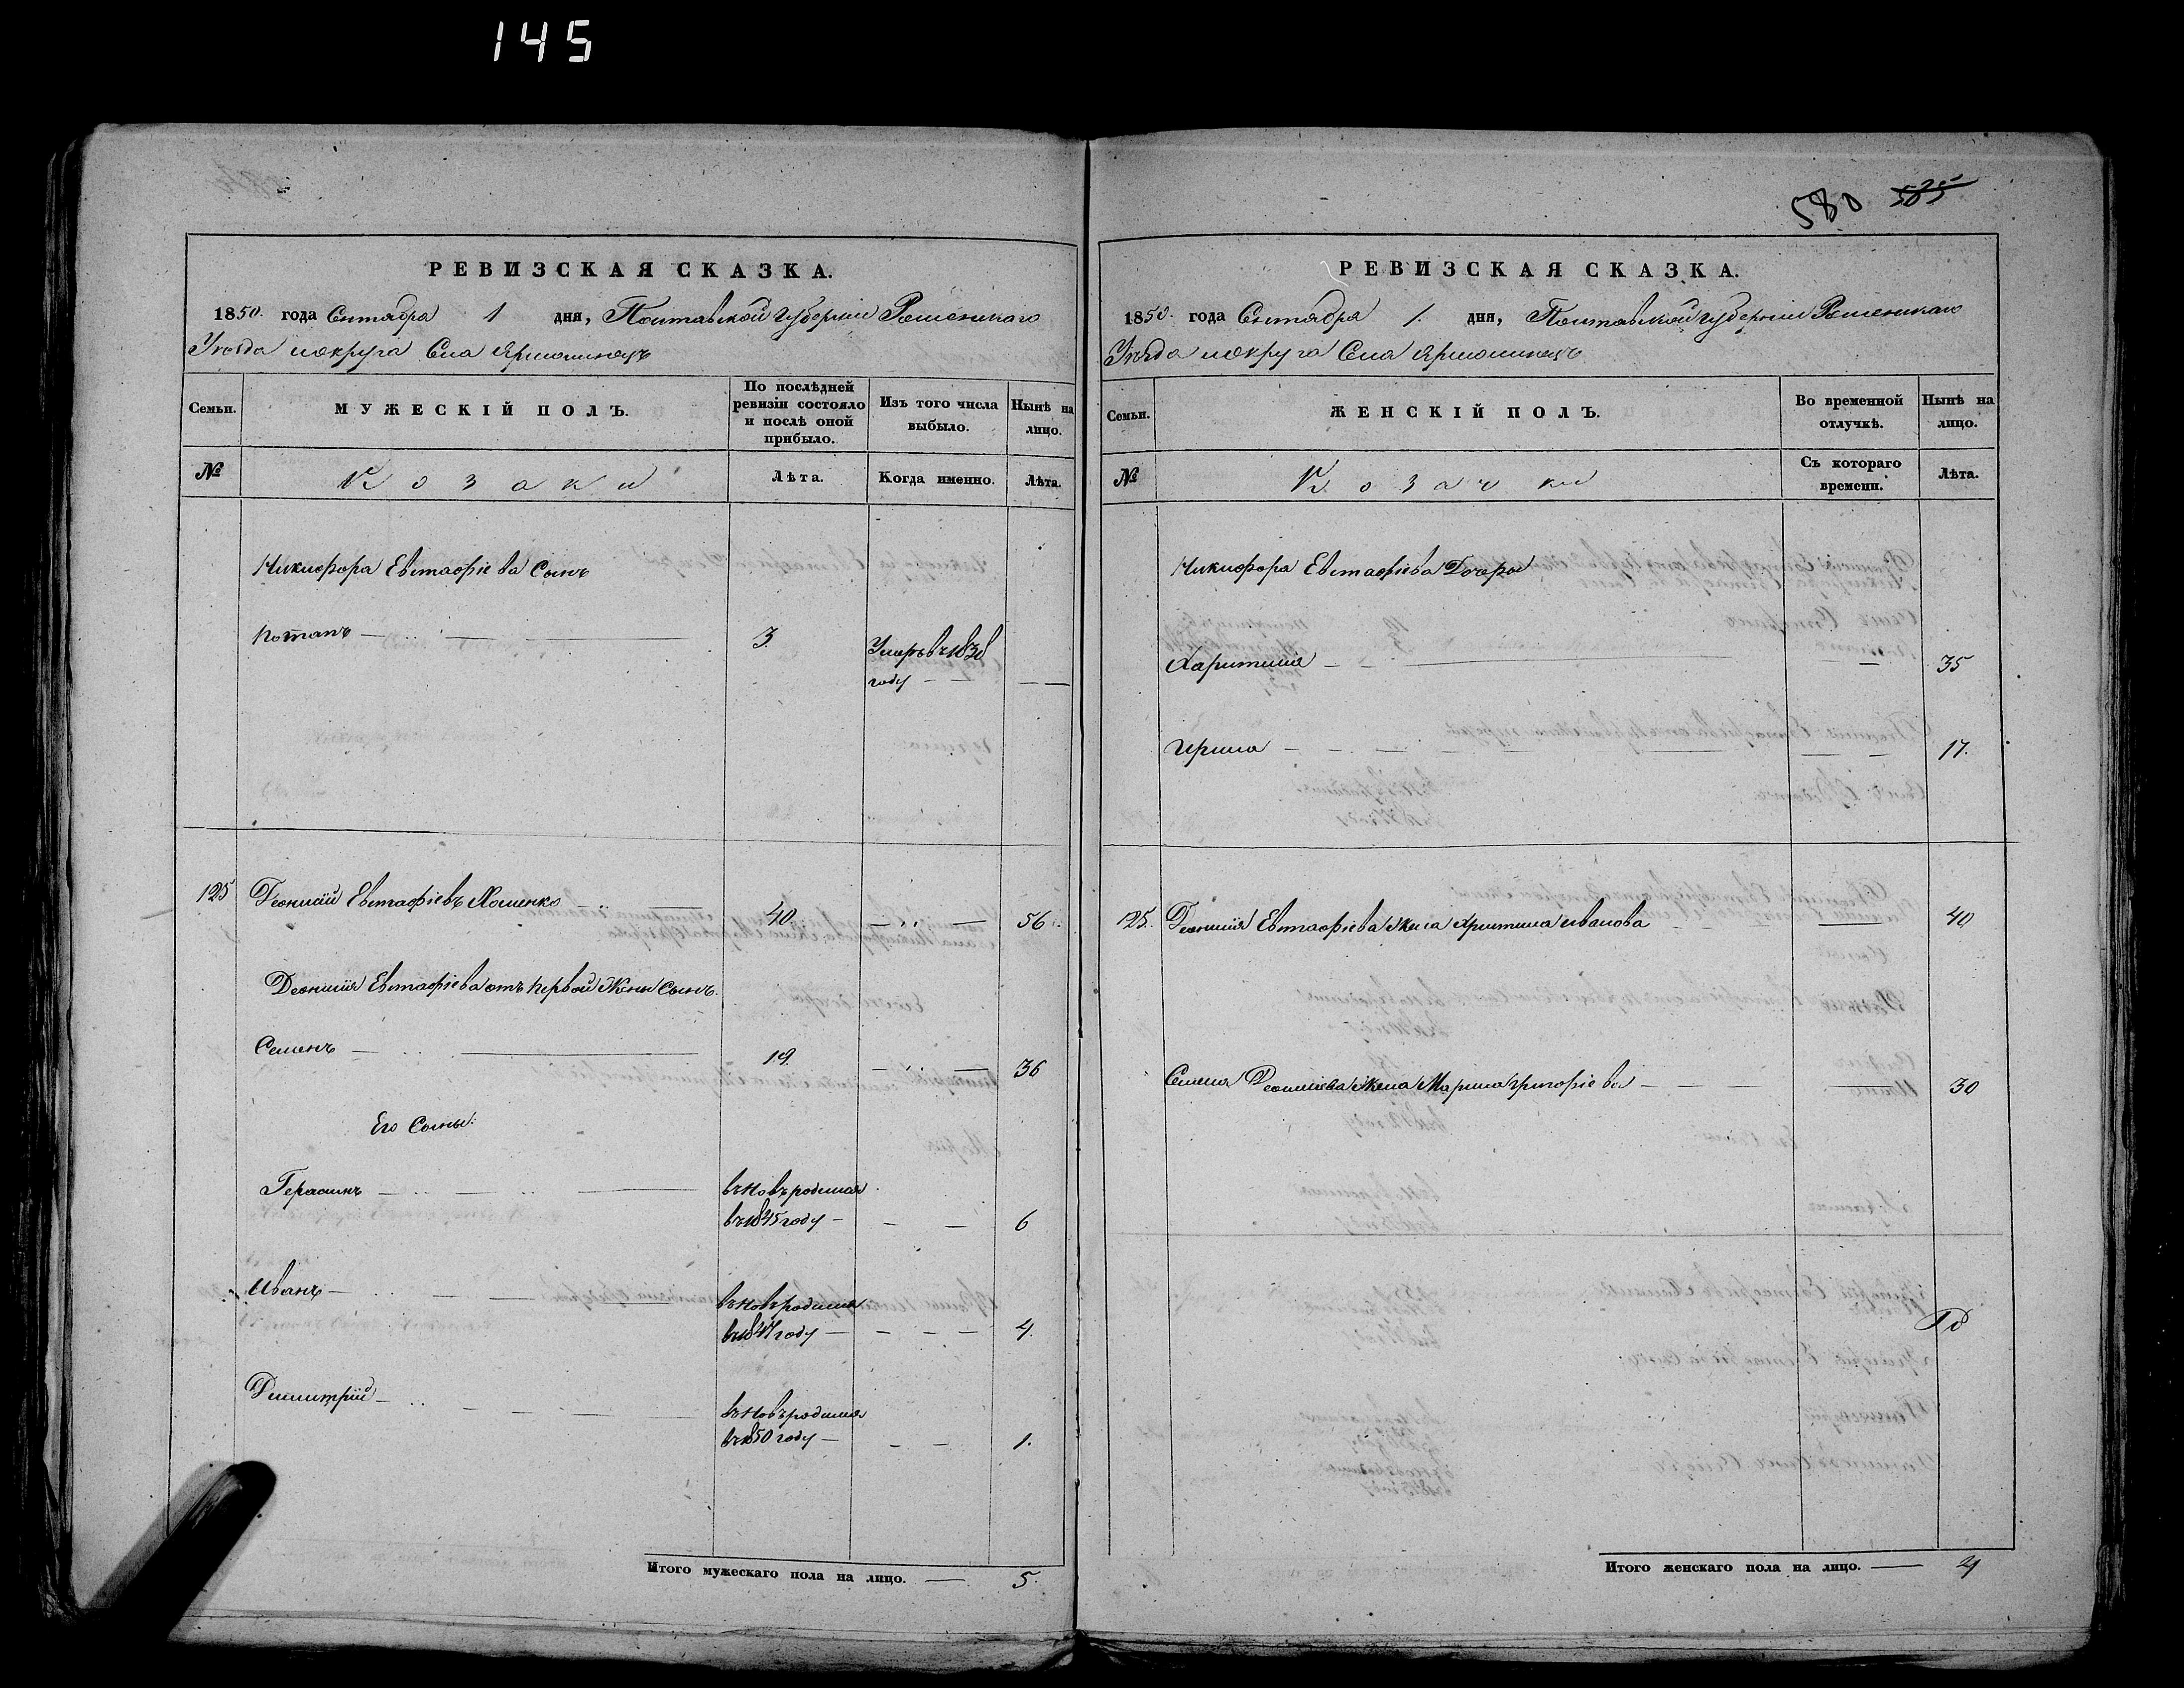 145
580 525
РЕВИЗСКАЯ СКАЗКА.
1850. года Сентября 1 дня, Полтавской Губернии Роменскаго
Уезда и округа Села Ярмолинецъ
Семьи.
МУЖЕСКІЙ ПОЛЪ.
По послѣдней ревизіи состояло и послѣ оной прибыло.
Изъ того числа выбыло.
Нынѣ на лицо.
№
Козаки
Лѣта.
Когда именно.
Лѣта.
Никифора Евстафіева Сынъ
Потапъ 3. Умеръ въ 1838
году
125 Деонисій Евстафіевъ Хоменко 40. 56.
Деонисія Евстафіева отъ первой Жены Сынъ.
Семенъ 19. 36
Его Сыны:
Герасимъ вновь родился
въ 1845 году 6
Иванъ вновь родился
въ 1847 году 4.
Димитрій вновь родился
въ 1850 году 1.
Итого мужескаго пола на лицо. 5.
РЕВИЗСКАЯ СКАЗКА.
1850. года Сентября 1. дня, Полтавской Губернии Роменскаго
Уѣзда и округа Села Ярмолинецъ
Семьи.
ЖЕНСКІЙ ПОЛЪ.
Во временной отлучкѣ.
Нынѣ на лицо.
№
Козачки
Съ котораго времени.
Лѣта.
Никифора Евстафіева Дочеры
Харитина 35
Ирина 17.
125. Деонисія Евстафіева Жена Христина Иванова 40
Семена Деонисіева Жена Марина Григоріева 30
Итого женскаго пола на лицо. 4